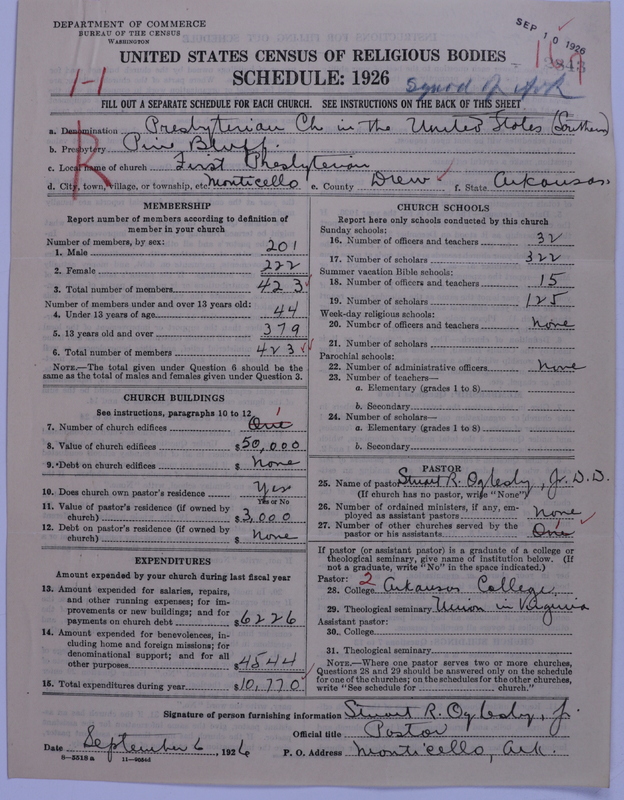 DEPARTMENT OF COMMERCE
BUREAU OF THE CENSUS
WASHINGTON
SEP 10 1926
UNITED STATES CENSUS OF RELIGIOUS BODIES
SCHEDULE: 1926
1-1
Synod of Ark
FILL OUT A SEPARATE SCHEDULE FOR EACH CHURCH. SEE INSTRUCTIONS ON THE BACK OF THIS SHEET
a. Denomination Presbyterian Ch in the United States (Southern)
b. Presbytery Pine Bluff.
c. Local name of church First Presbyterian
d. City, town, village, or township, etc. Monticello e. County Drew f. State Arkansas.
MEMBERSHIP
Report number of members according to definition of
member in your church
Number of members, by sex:
1. Male 201
2. Female 222
3. Total number of members 423
Number of members under and over 13 years old:
4. Under 13 years of age 44
5. 13 years old and over 379
6. Total number of members 423
NOTE.—The total given under Question 6 should be
same as the total of males and females given under Question 3.
CHURCH BUILDINGS
See instructions, paragraphs 10 to 12
7. Number of church edifices One 1
8. Value of church edifices $50,000
9. Debt on church edifices $ None
10. Does church own pastor's residence Yes
Yes or No
11. Value of pastor's residence (if owned by
church) $3,000
12. Debt on pastor's residence (if owned by
church) $ None
EXPENDITURES
Amount expended by your church during last fiscal year
13. Amount expended for salaries, repairs,
and other running expenses; for im-
provements or new buildings; and for
payments on church debt $6226
14. Amount expended for benevolences, in-
cluding home and foreign missions; for
denominational support; and for all
other purposes $4544
15. Total expenditures during year $10,770
CHURCH SCHOOLS
Report here only schools conducted by this church
Sunday schools:
16. Number of officers and teachers 32
17. Number of scholars 322
Summer vacation Bible schools:
18. Number of officers and teachers 15
19. Number of scholars 125
Week-day religious schools:
20. Number of officers and teachers None
21. Number of scholars
Parochial schools:
22. Number of administrative officers None
23. Number of teachers—
a. Elementary (grades 1 to 8)
b. Secondary
24. Number of scholars—
a. Elementary (grades 1 to 8)
b. Secondary
PASTOR
25. Name of pastor Stuart R. Oglesby, Jr. D.D.
(If church has no pastor, write "None")
26. Number of ordained ministers, if any, em-
ployed as assistant pastors None
27. Number of other churches served by the
pastor or his assistants One
If pastor (or assistant pastor) is a graduate of a college or
theological seminary, give name of institution below. (If
not a graduate, write "No" in the space indicated.)
Pastor: 2
28. College Arkansas College,
29. Theological seminary Union in Virginia
Assistant pastor:
30. College
31. Theological seminary
NOTE.—Where one pastor serves two or more churches,
Questions 28 and 29 should be answered only on the schedule
for one of the churches; on the schedules for the other churches,
write "See schedule for ______ church."
Signature of person furnishing information Stuart R. Oglesby, Jr.
Official title Pastor
Date September 6, 1926 P. O. Address Monticello, Ark.
8—5518 a